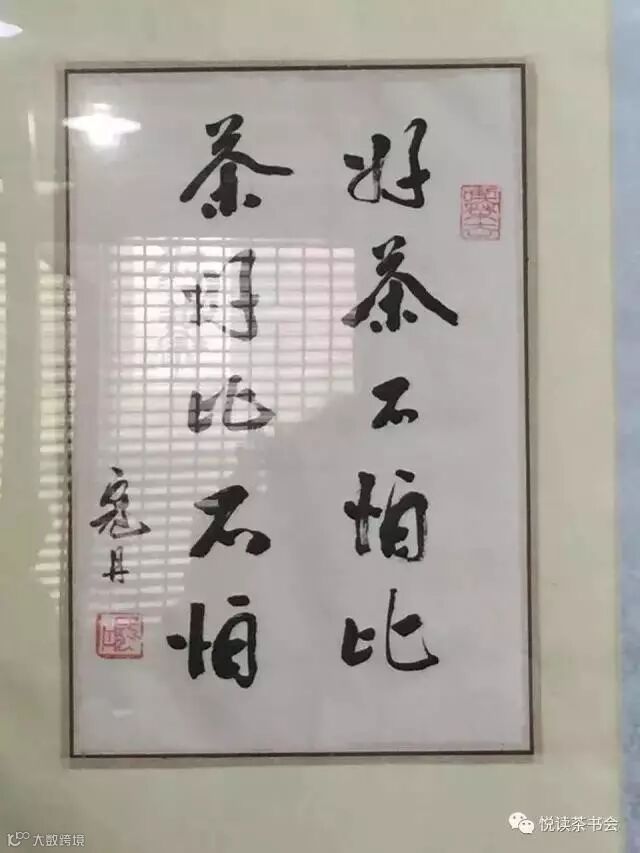 好茶不怕比
茶好比不怕
寇丹
悦读茶书会
大数跨境